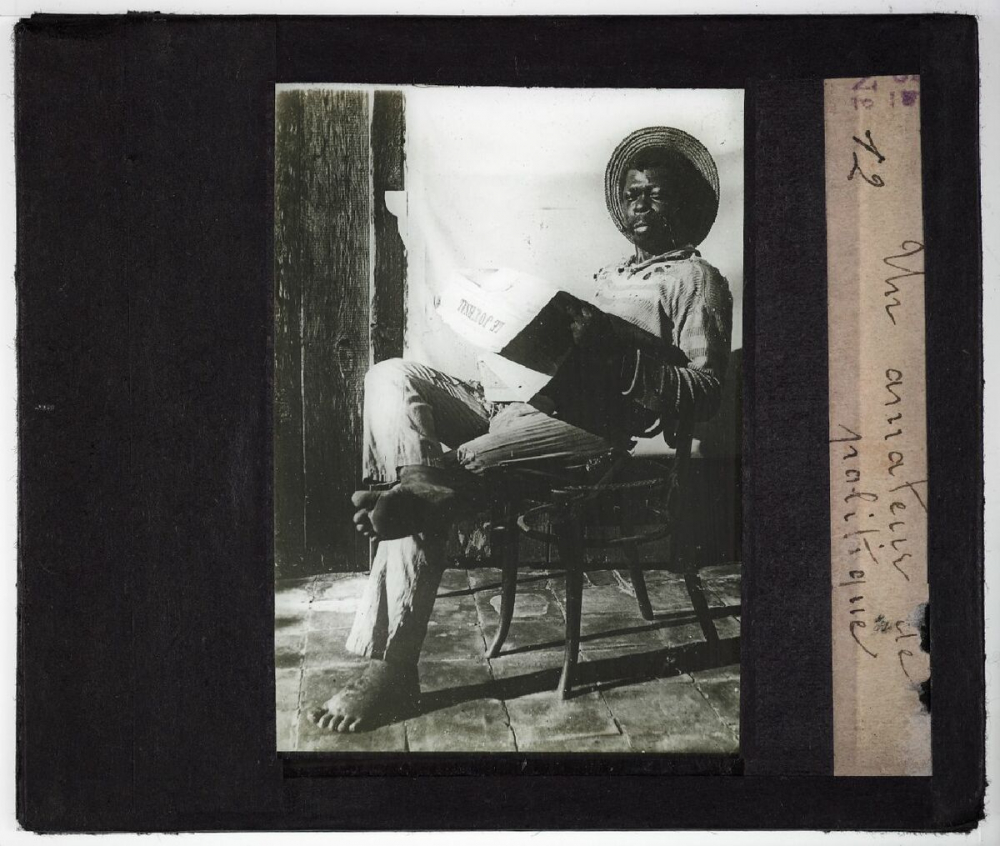 Nº 12
Un amateur de
politique
LE JOURNAL